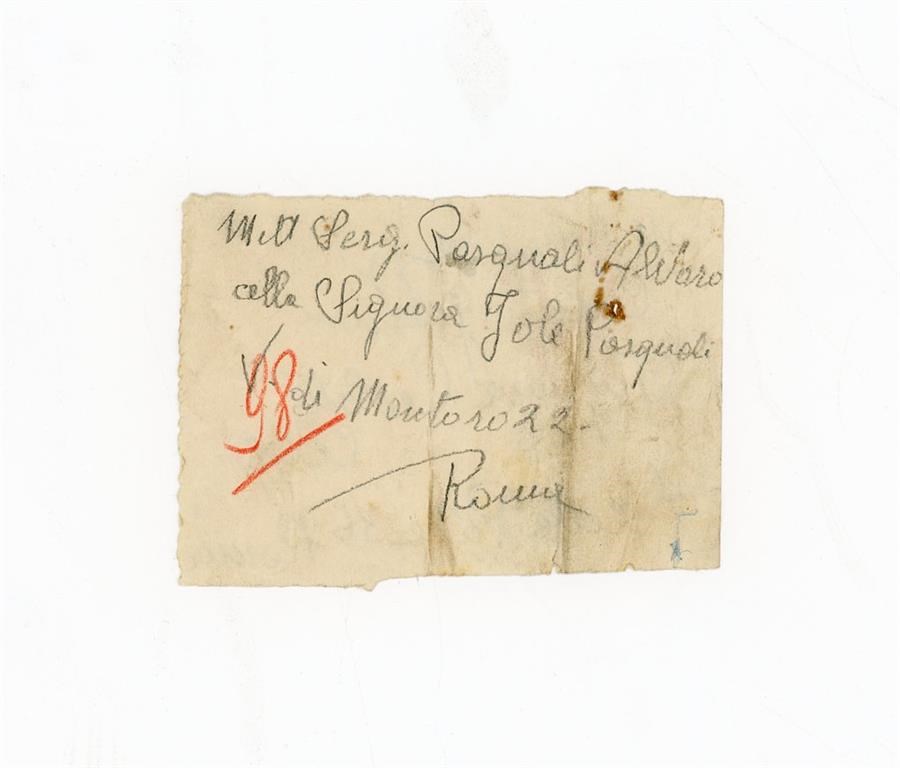 Mitt Serg. Pasquali Alvaro
alla Signora Jole Pasquali
V. di Montoro 22-
98
Roma